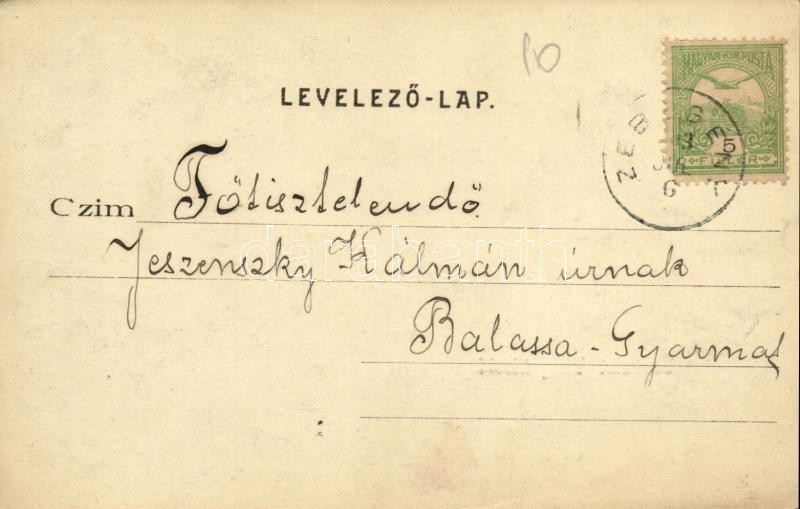 10
MAGYAR KIR. POSTA
LEVELEZŐ-LAP.
5
FILLÉR
ZEBEGÉNY
Czim Főtisztelendő
Jeszenszky Kálmán úrnak
Balassa-Gyarmat
darabanth